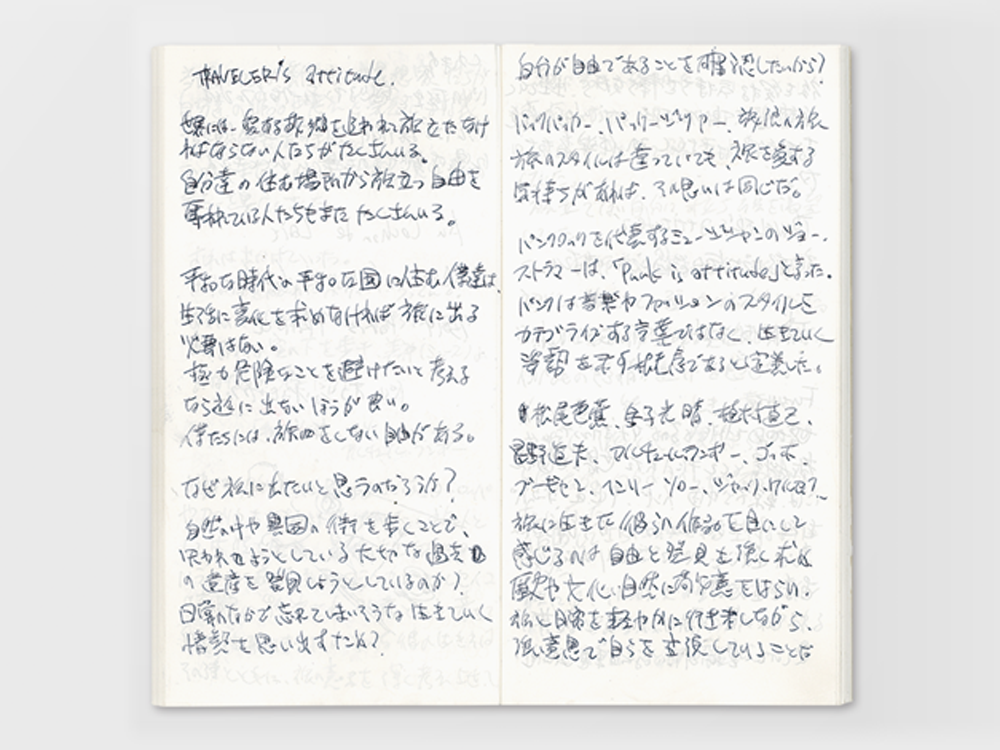 TRAVELER's attitude.
世界には、愛する故郷を追われ、旅立たなけ
ればならない人たちがたくさんいる。
自分達の住む場所から旅立つ自由を
奪われている人たちもまたたくさんいる。
平和な時代の平和な国に住む僕達は、
生活に変化を求めなければ旅に出る
必要はない。
極力危険なことを避けたいと考える
なら逆に出ないほうが良い。
僕たちには、旅をしない自由がある。
なぜ旅に出たいと思うのだろうか?
自然の中や異国の街を歩くことで、
失われようとしている大切な過去
の遺産を発見しようとしているのか?
日常のなかで忘れてしまいそうな生きていく
情熱を思い出すため?
自分が自由であることを確認したいから?
バックパッカー、パッケージツアー、放浪の旅
旅のスタイルは違っていても、旅を愛する
気持ちがあれば、その思いは同じだ。
パンクロックを代表するミュージシャンのジョー・
ストラマーは、「Punk is attitude」と言った。
パンクは音楽やファッションのスタイルを
カテゴライズする言葉ではなく、生きていく
姿勢を示す概念であると定義した。
松尾芭蕉、金子光晴、植村直己、
星野道夫、アルチュール・ランボー、ゴッホ、
ゴーギャン、ヘンリー・ソロー、ジャック・ケルアック
旅に生きた彼らの作品を目にして
感じるのは自由と発見を強く求め
歴史や文化、自然に敬意をはらい、
旅と日常を軽やかに行き来しながら、
強い意思で自らを主張していることだ